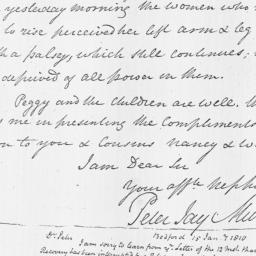 yesterday morning the women who
to rise perceived her left arm & leg
th a palsey, which still continues;
deprived of all power in them.
Peggy and the children are well. W
s me in presenting the compliments
on to you & Cousins Nancy & 
I am Dear Sir
Your affte Neph
Peter Jay Mun
Dr. Peter
Bedford 18 Jan y 1810
I am sorry to learn from yr. Letter of the 12 Inst. that
Recovery has been interrupted